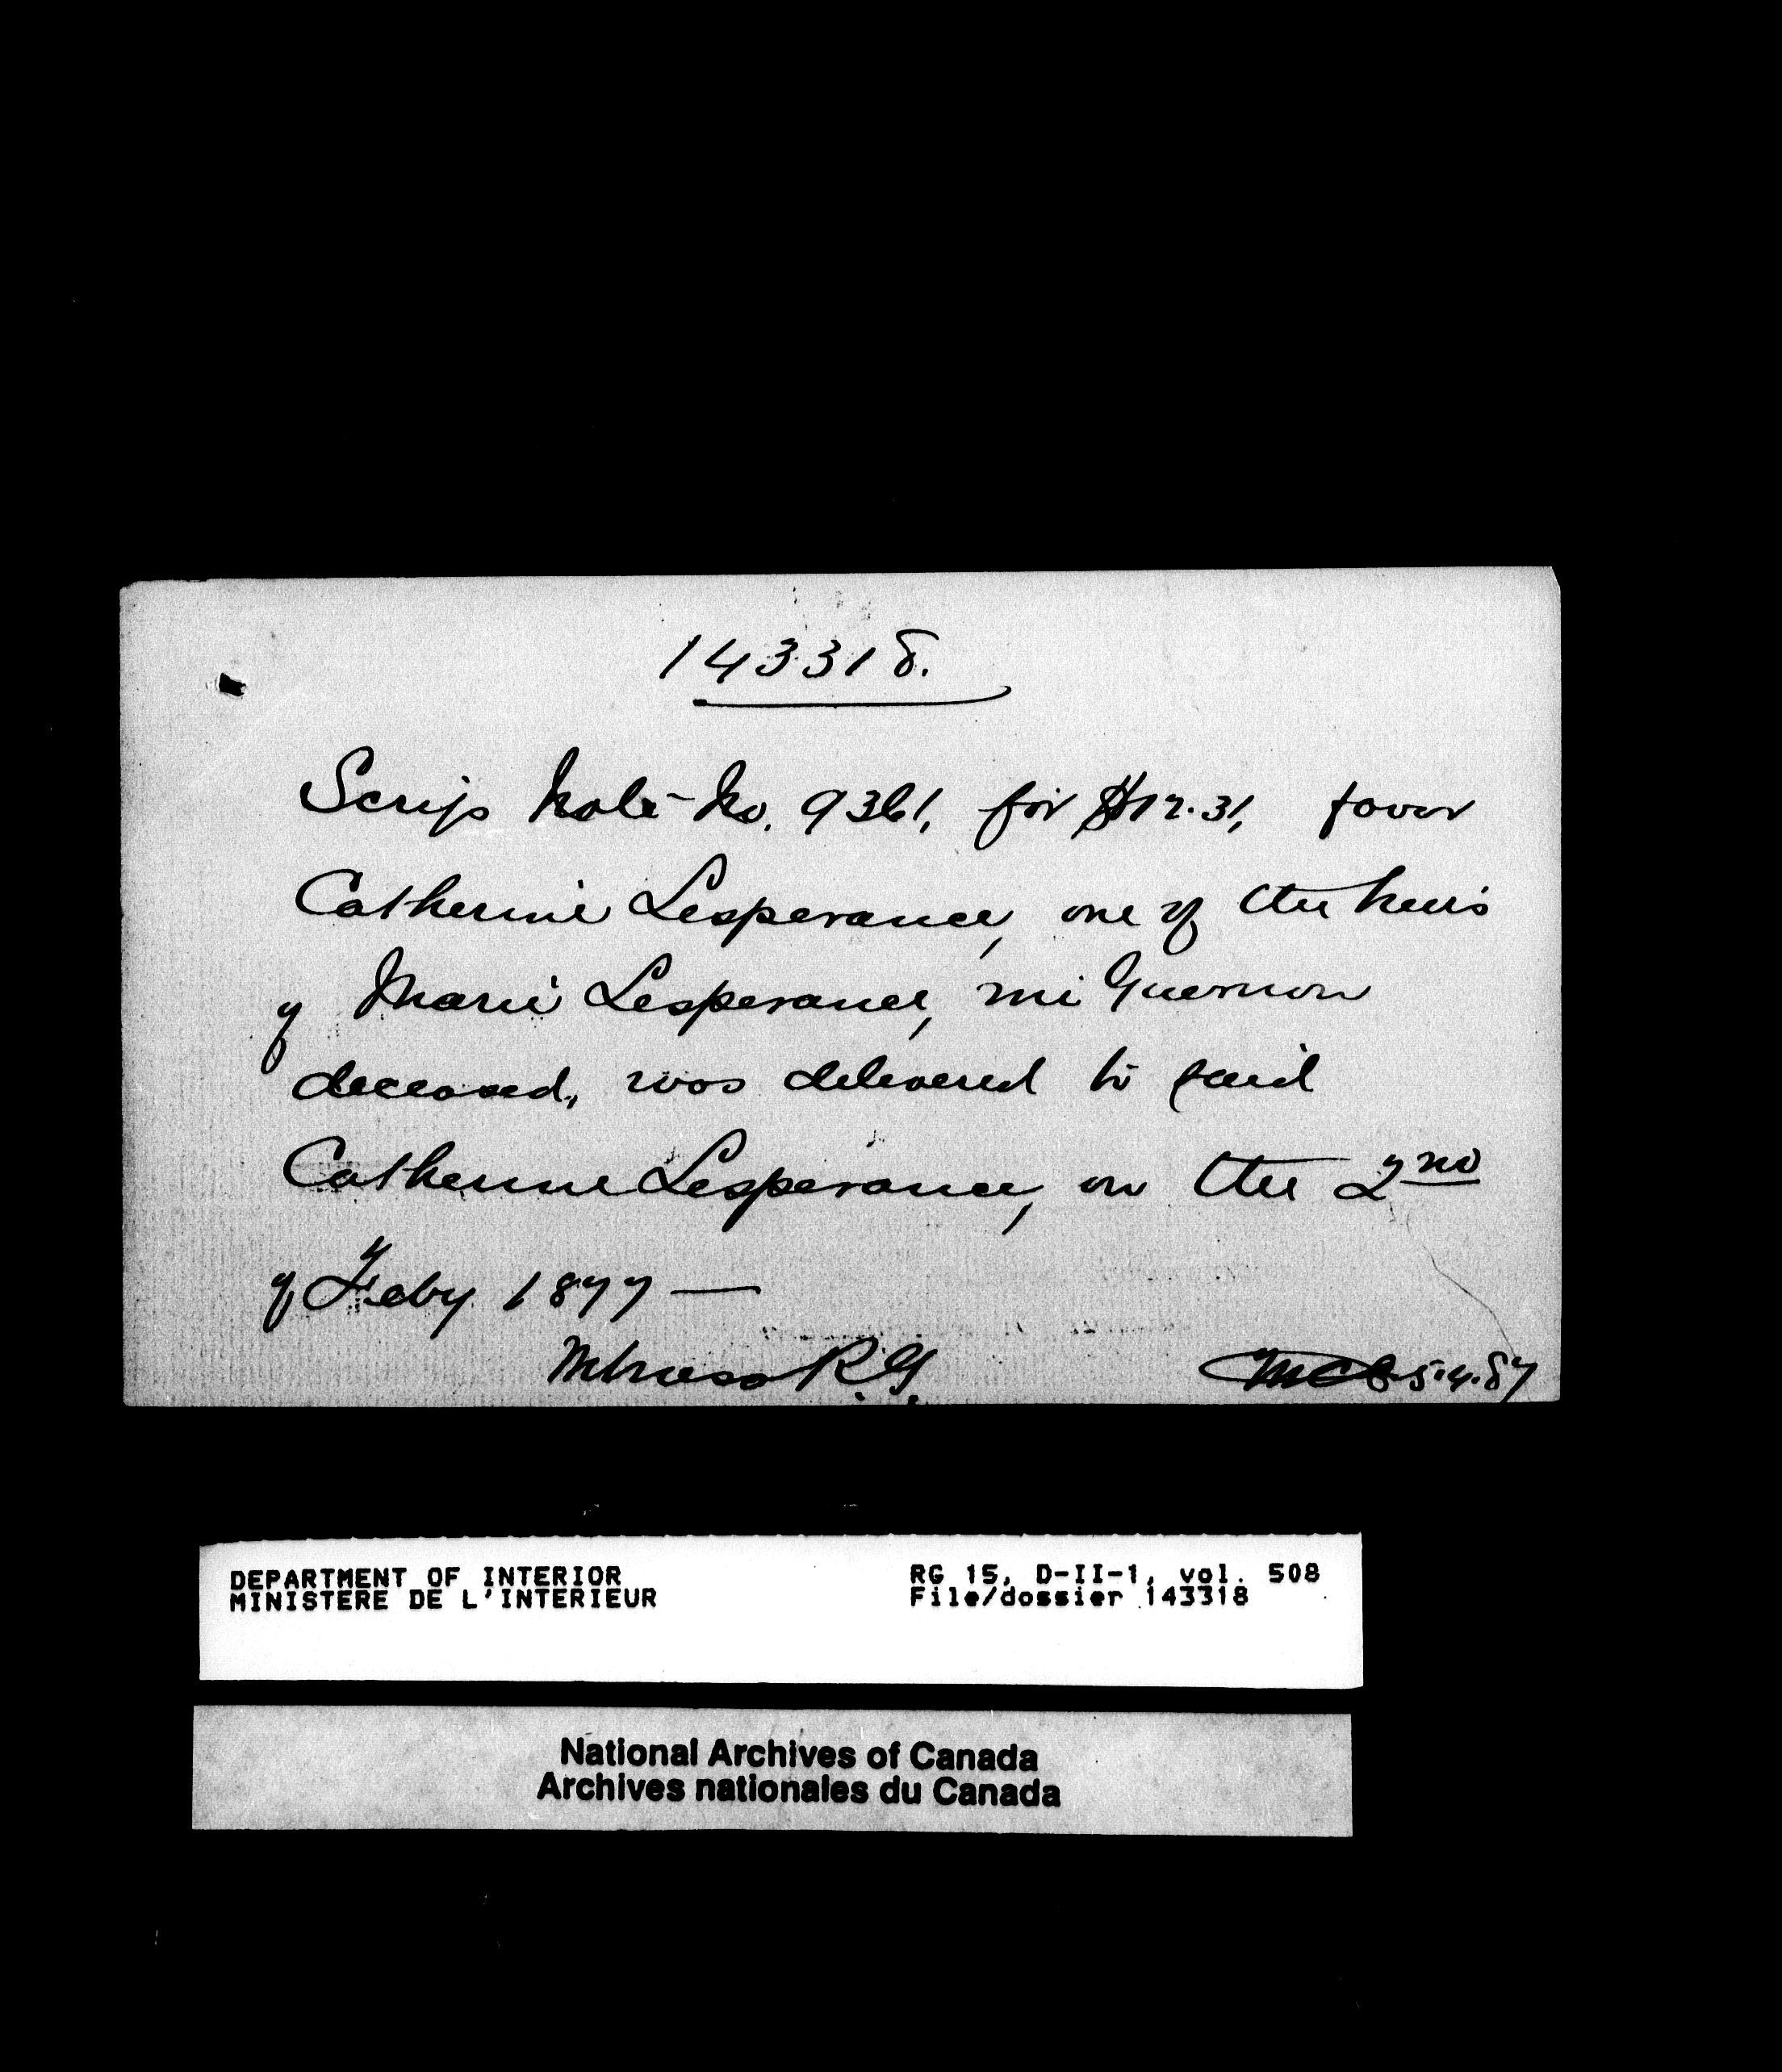 143318.
Scrip Note No. 9361, for $12.31, favor
Catherine Lesperance, one of the heirs
of Marie Lesperance, née Guernon
deceased, was delivered to said
Catherine Lesperance, on the 2nd
of Feby 1877 —
R.G. 5.4.87
DEPARTMENT OF INTERIOR RG 15, D-II-1, vol. 508
MINISTERE DE L'INTERIEUR File/dossier 143318
National Archives of Canada
Archives nationales du Canada